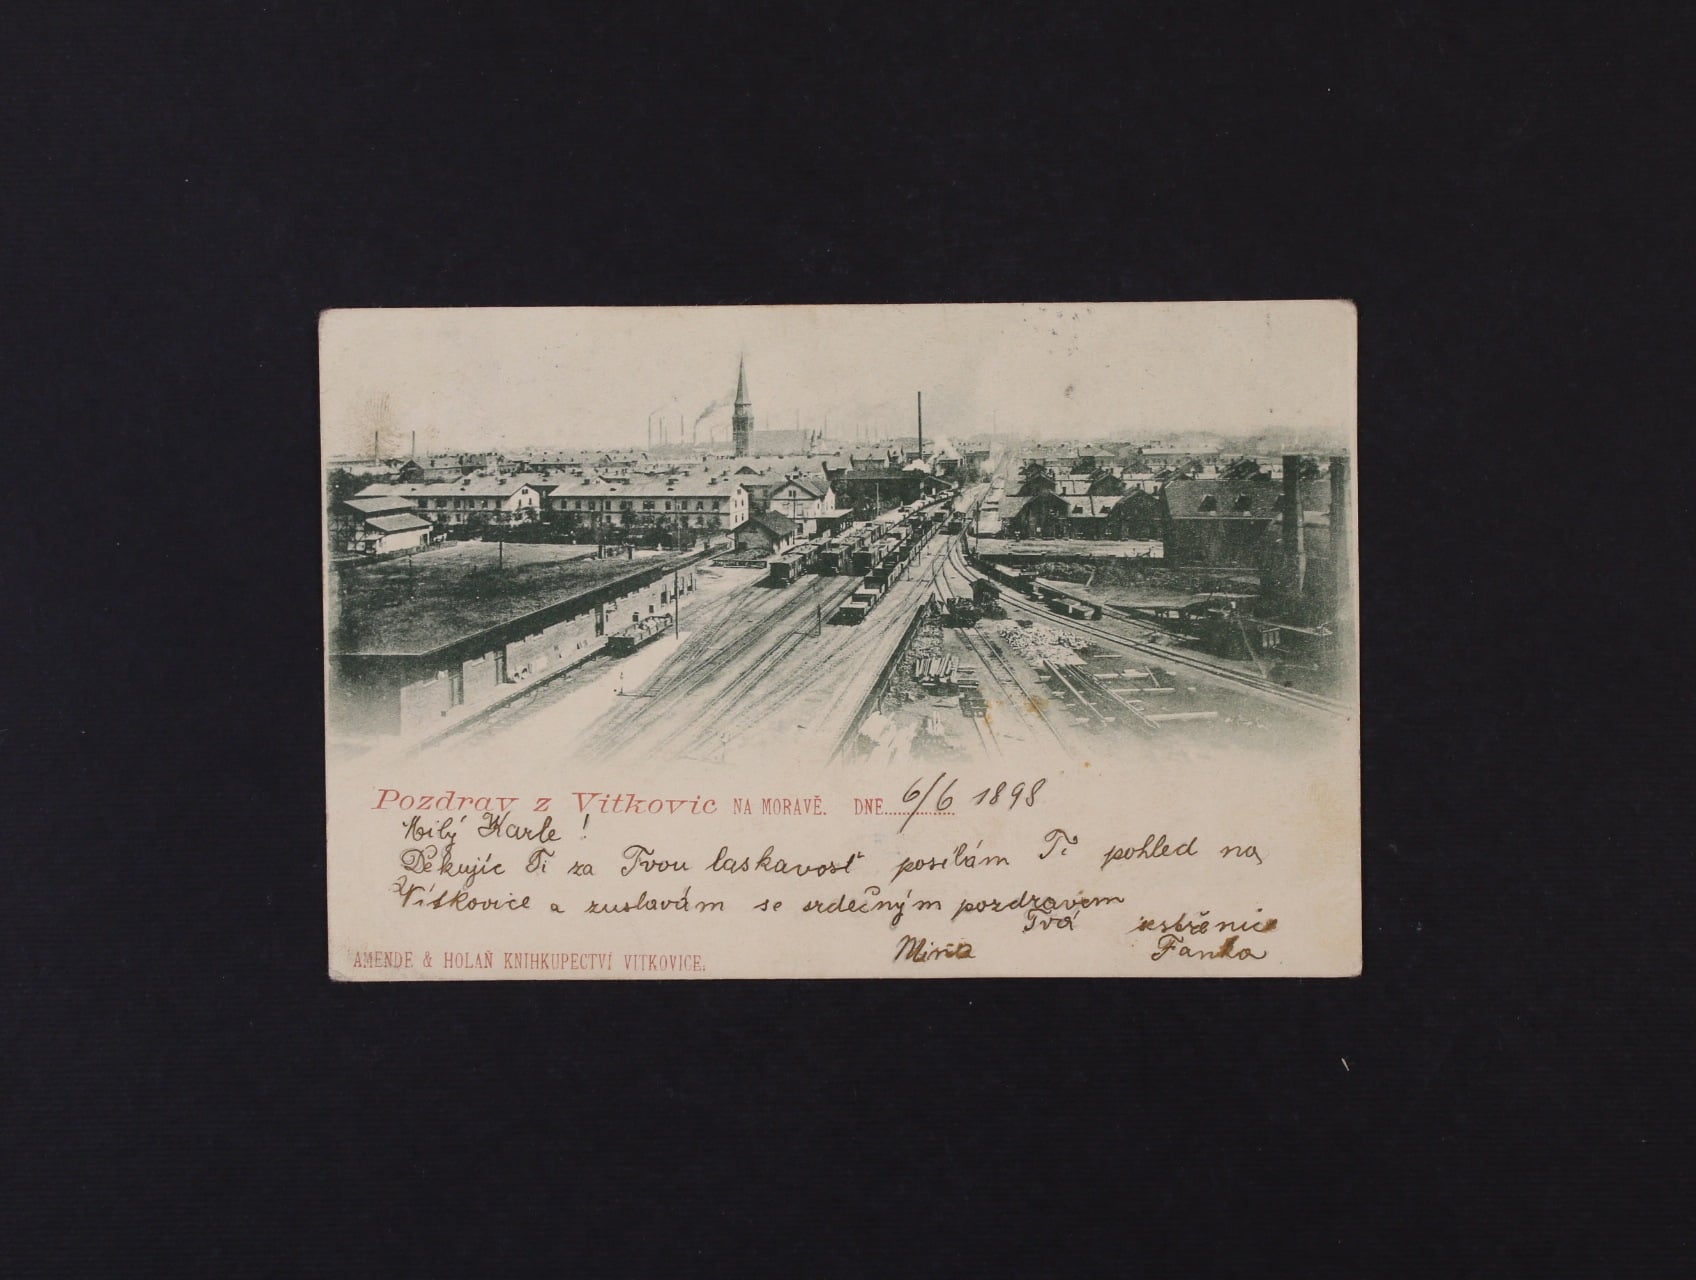 Pozdrav z Vitkovic NA MORAVĚ. DNE 6/6 1898
Milý Karle!
Děkujíc Ti za Tvou laskavost posílám Ti pohled na
Vítkovice a zustavám se srdečným pozdravem
Tvá sestřenice
Minna Fanka
AMENDE & HOLAŇ KNIHKUPECTVÍ VITKOVICE.